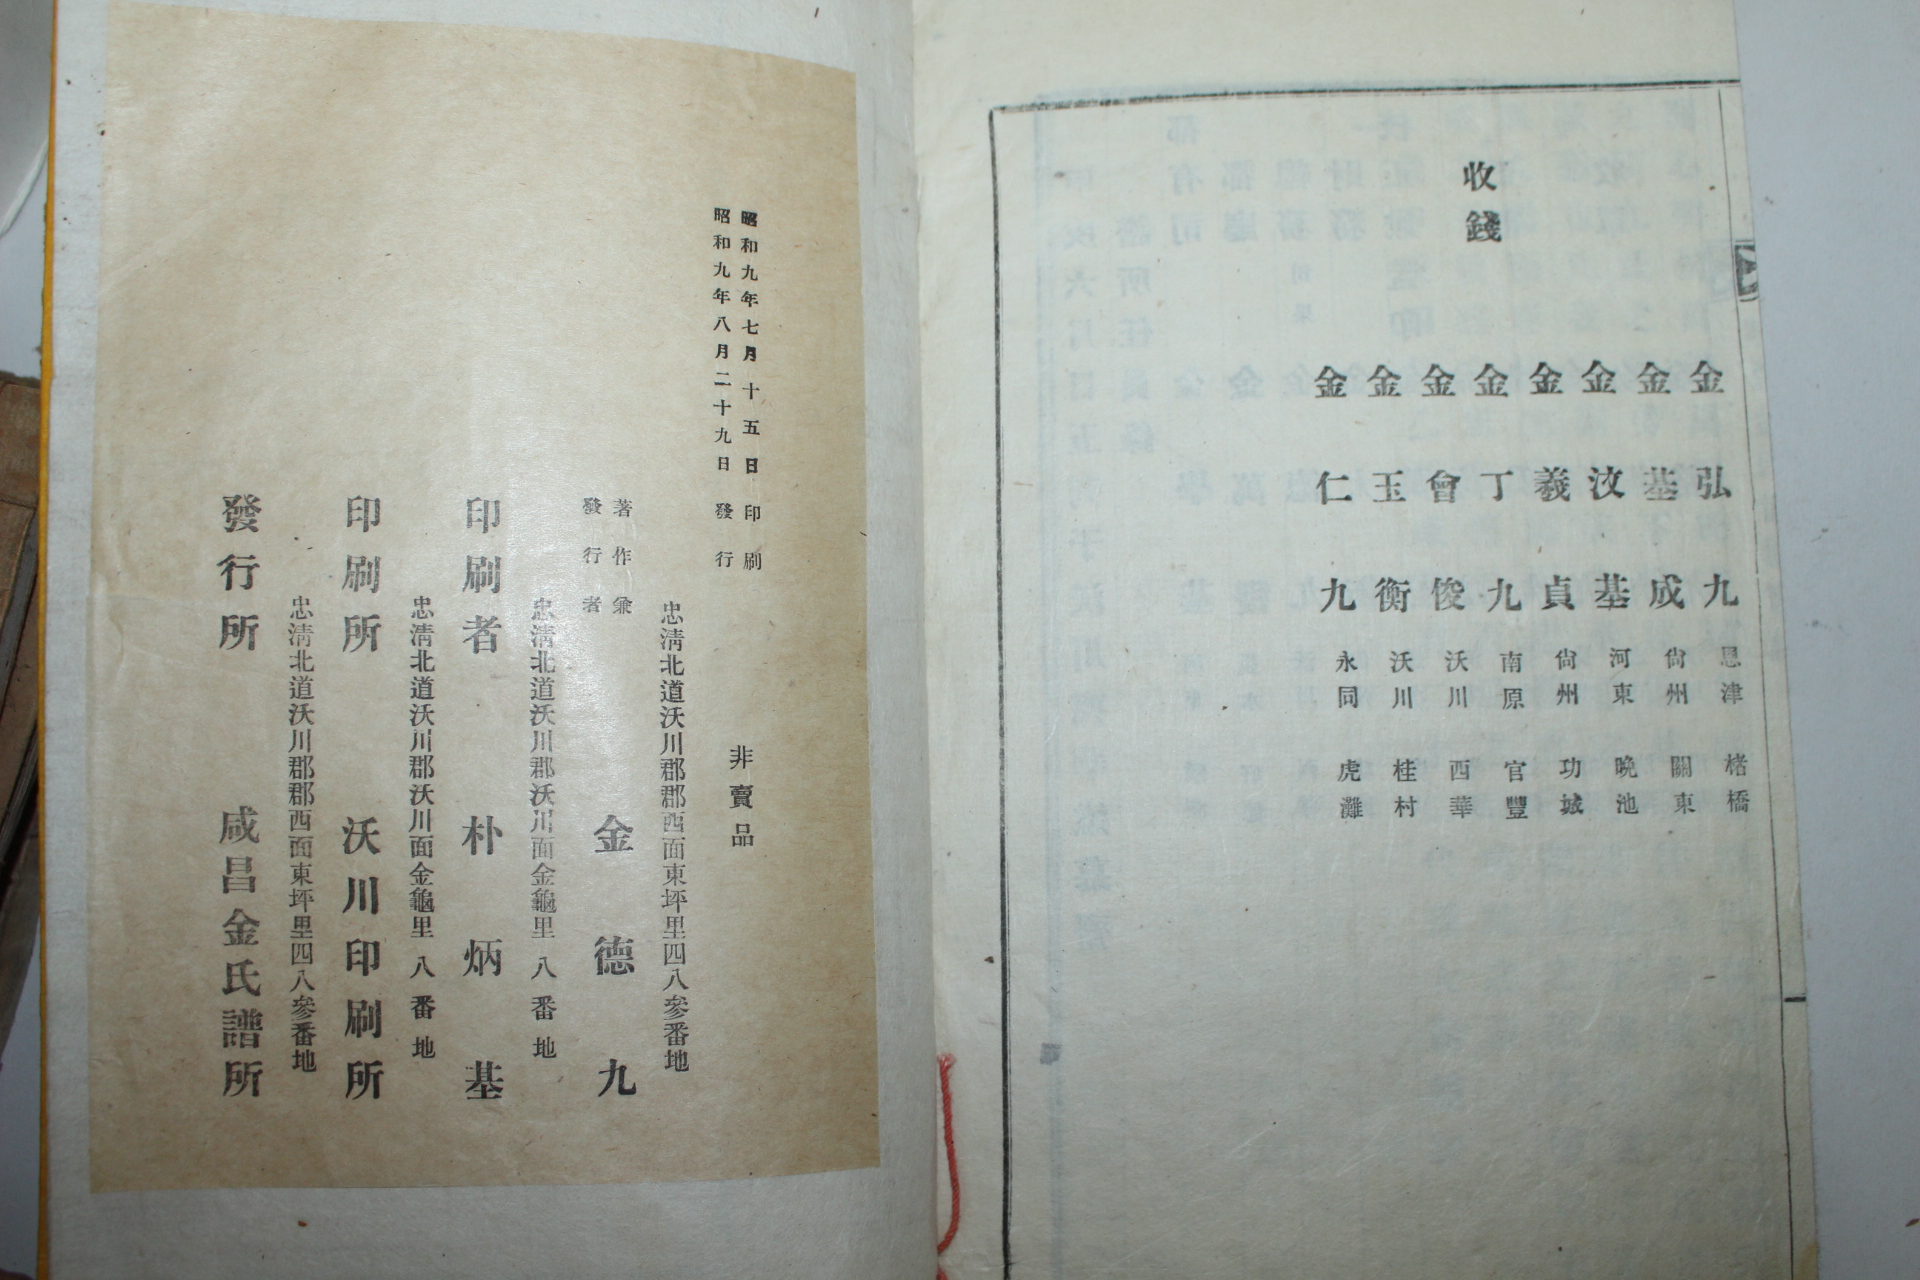 收錢
金弘九 恩津 楮橋
金基成 尙州 關東
金汶基 河東 晩池
金羲貞 尙州 功城
金丁九 南原 官豐
金會俊 沃川 西華
金玉衡 沃川 桂村
金仁九 永同 虎灘
昭和九年七月十五日 印刷
昭和九年八月二十九日 發行
非賣品
忠淸北道沃川郡郡西面東坪里四八參番地
著作兼
發行者
金德九
忠淸北道沃川郡沃川面金龜里八番地
印刷者 朴炳基
忠淸北道沃川郡沃川面金龜里八番地
印刷所 沃川印刷所
忠淸北道沃川郡郡西面東坪里四八參番地
發行所 咸昌金氏譜所